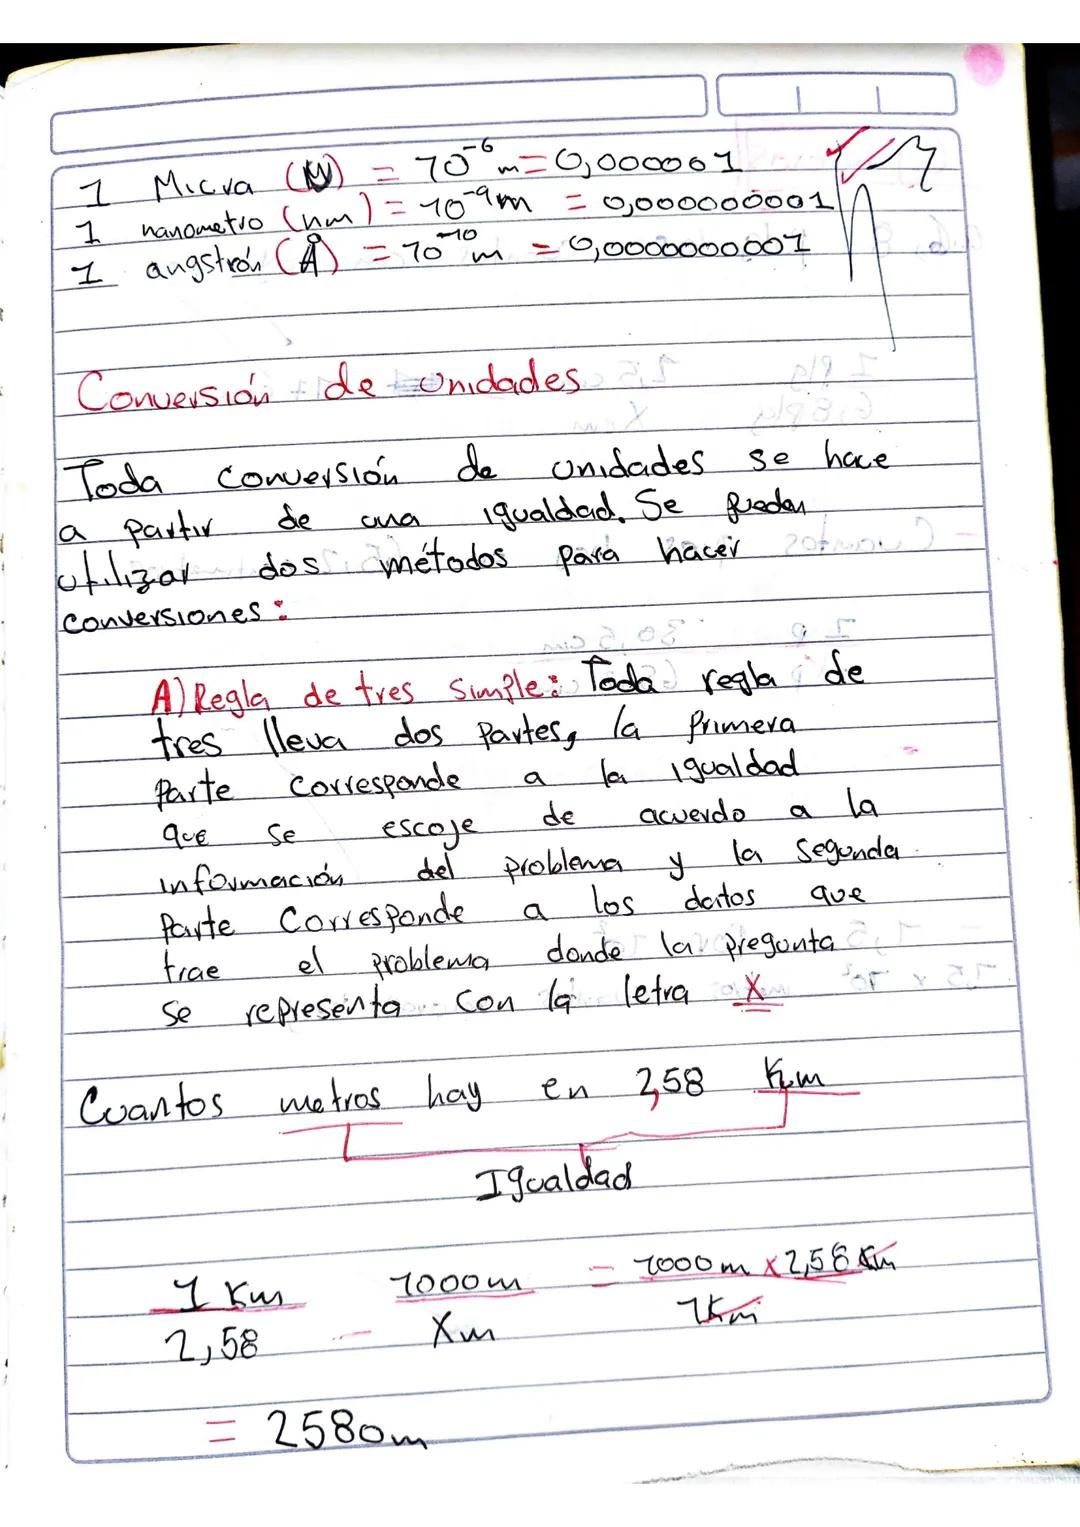 1 Micra (M) = 10⁻⁶ m = 0,000001
1 nanometro (nm) = 10⁻⁹m = 0,000000001
1 angstrón (Å) = 10⁻¹⁰ m = 0,0000000001
Conversión de unidades
Toda conversión de unidades se hace
a partir de una igualdad. Se pueden
utilizar dos métodos para hacer
conversiones:
A) Regla de tres simple: Toda regla de
tres lleva dos partes, la primera
parte corresponde a la igualdad
que se escoje de acuerdo a la
información del problema y la segunda
parte corresponde a los datos que
trae el problema donde la pregunta
se representa con la letra X
Cuantos metros hay en 2,58 Km
Igualdad
1 Km 1000m = 1000m x 2,58 Km
2,58 - Xm 1Km
= 2580m